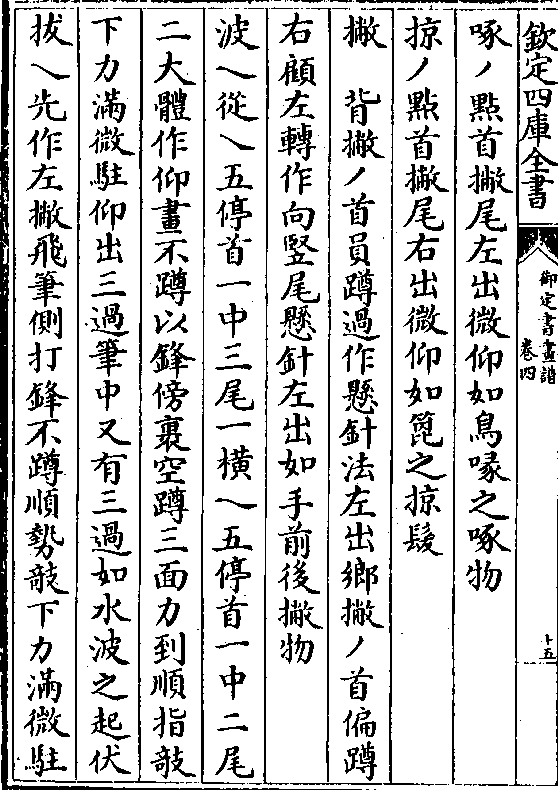 欽定四庫全書
御定書畫譜
卷四
十五
啄丿點首撇尾左出微仰如鳥喙之啄物
掠丿點首撇尾右出微仰如篦之掠髮
撇　背撇丿首員蹲過作懸針法左出鄉撇丿首偏蹲
右顧左轉作向竪尾懸針左出如手前後撇物
波乀從乀五停首一中三尾一橫乀五停首一中二尾
二大體作仰畫不蹲以鋒傍裹空蹲三面力到順指㪣
下力滿微駐仰出三過筆中又有三過如水波之起伏
拔乀先作左撇飛筆側打鋒不蹲順勢㪣下力滿微駐